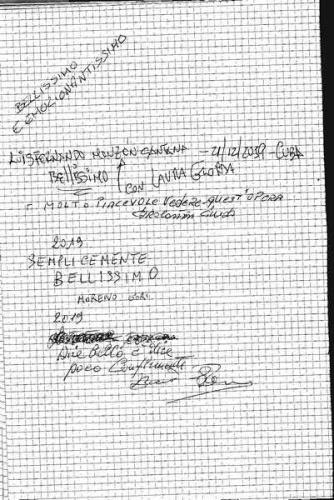 BELLISSIMO
E EMOZIONANTISSIMO
LUIS FERNANDO MONZON SANTANA - 21/12/2019 - CUBA
BELLISSIMO CON LAURA
È MOLTO PIACEVOLE VEDERE QUEST'OPERA
2019
SEMPLICEMENTE
BELLISSIMO
MORENO
2019
Dire bello è dire
poco Complimenti